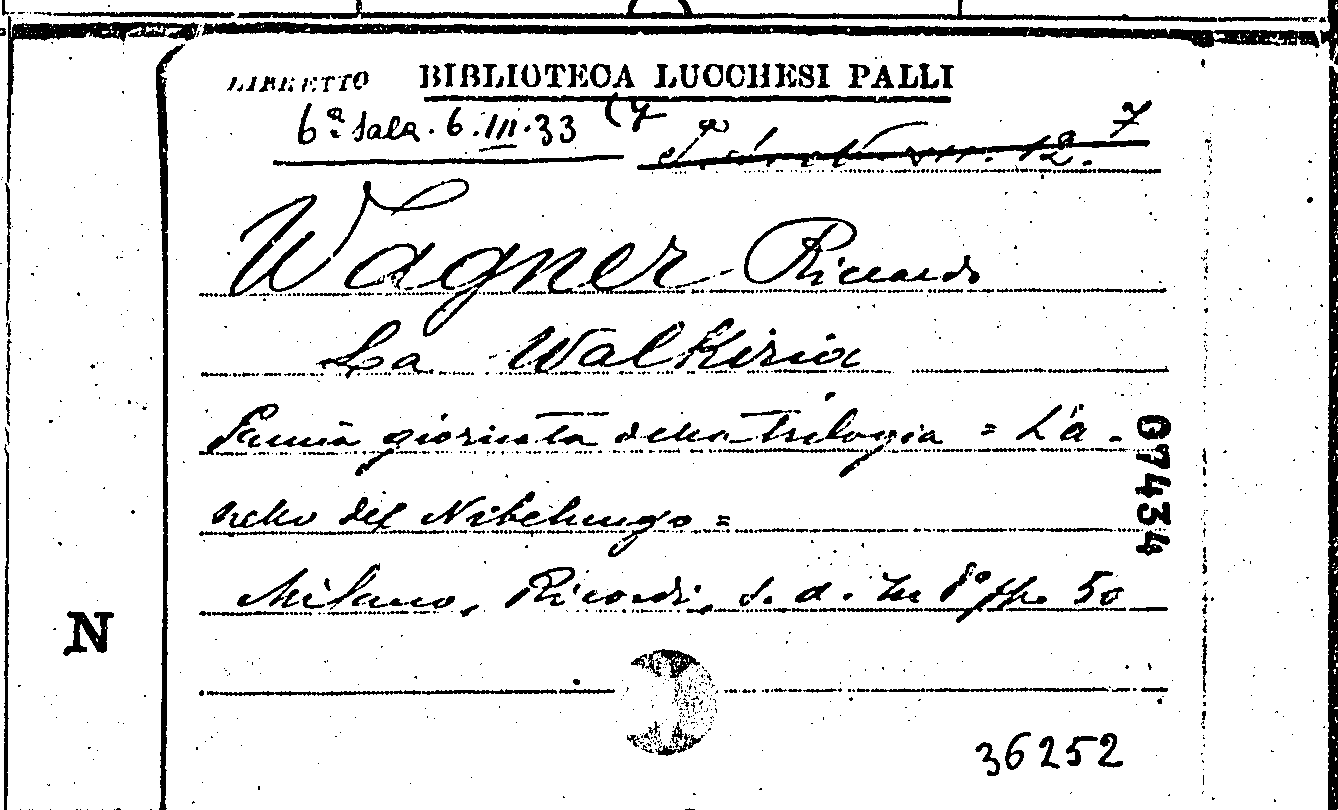 LIBRETTO BIBLIOTECA LUCCHESI PALLI
6ª Sala. 6.III.33 (7
12. 7
Wagner Riccardo
La Walkiria
Prima giornata della trilogia = L'a-
nello del Nibelungo =
Milano, Ricordi, s. d. In 8° pp. 50
07434
N
36252